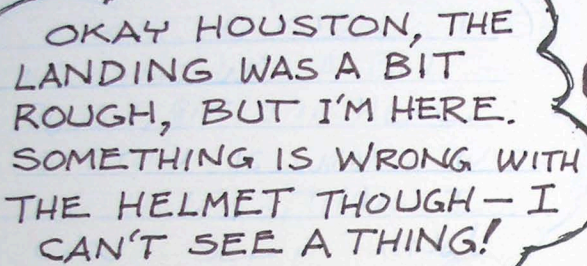 OKAY HOUSTON, THE
LANDING WAS A BIT
ROUGH, BUT I'M HERE.
SOMETHING IS WRONG WITH
THE HELMET THOUGH — I
CAN'T SEE A THING!